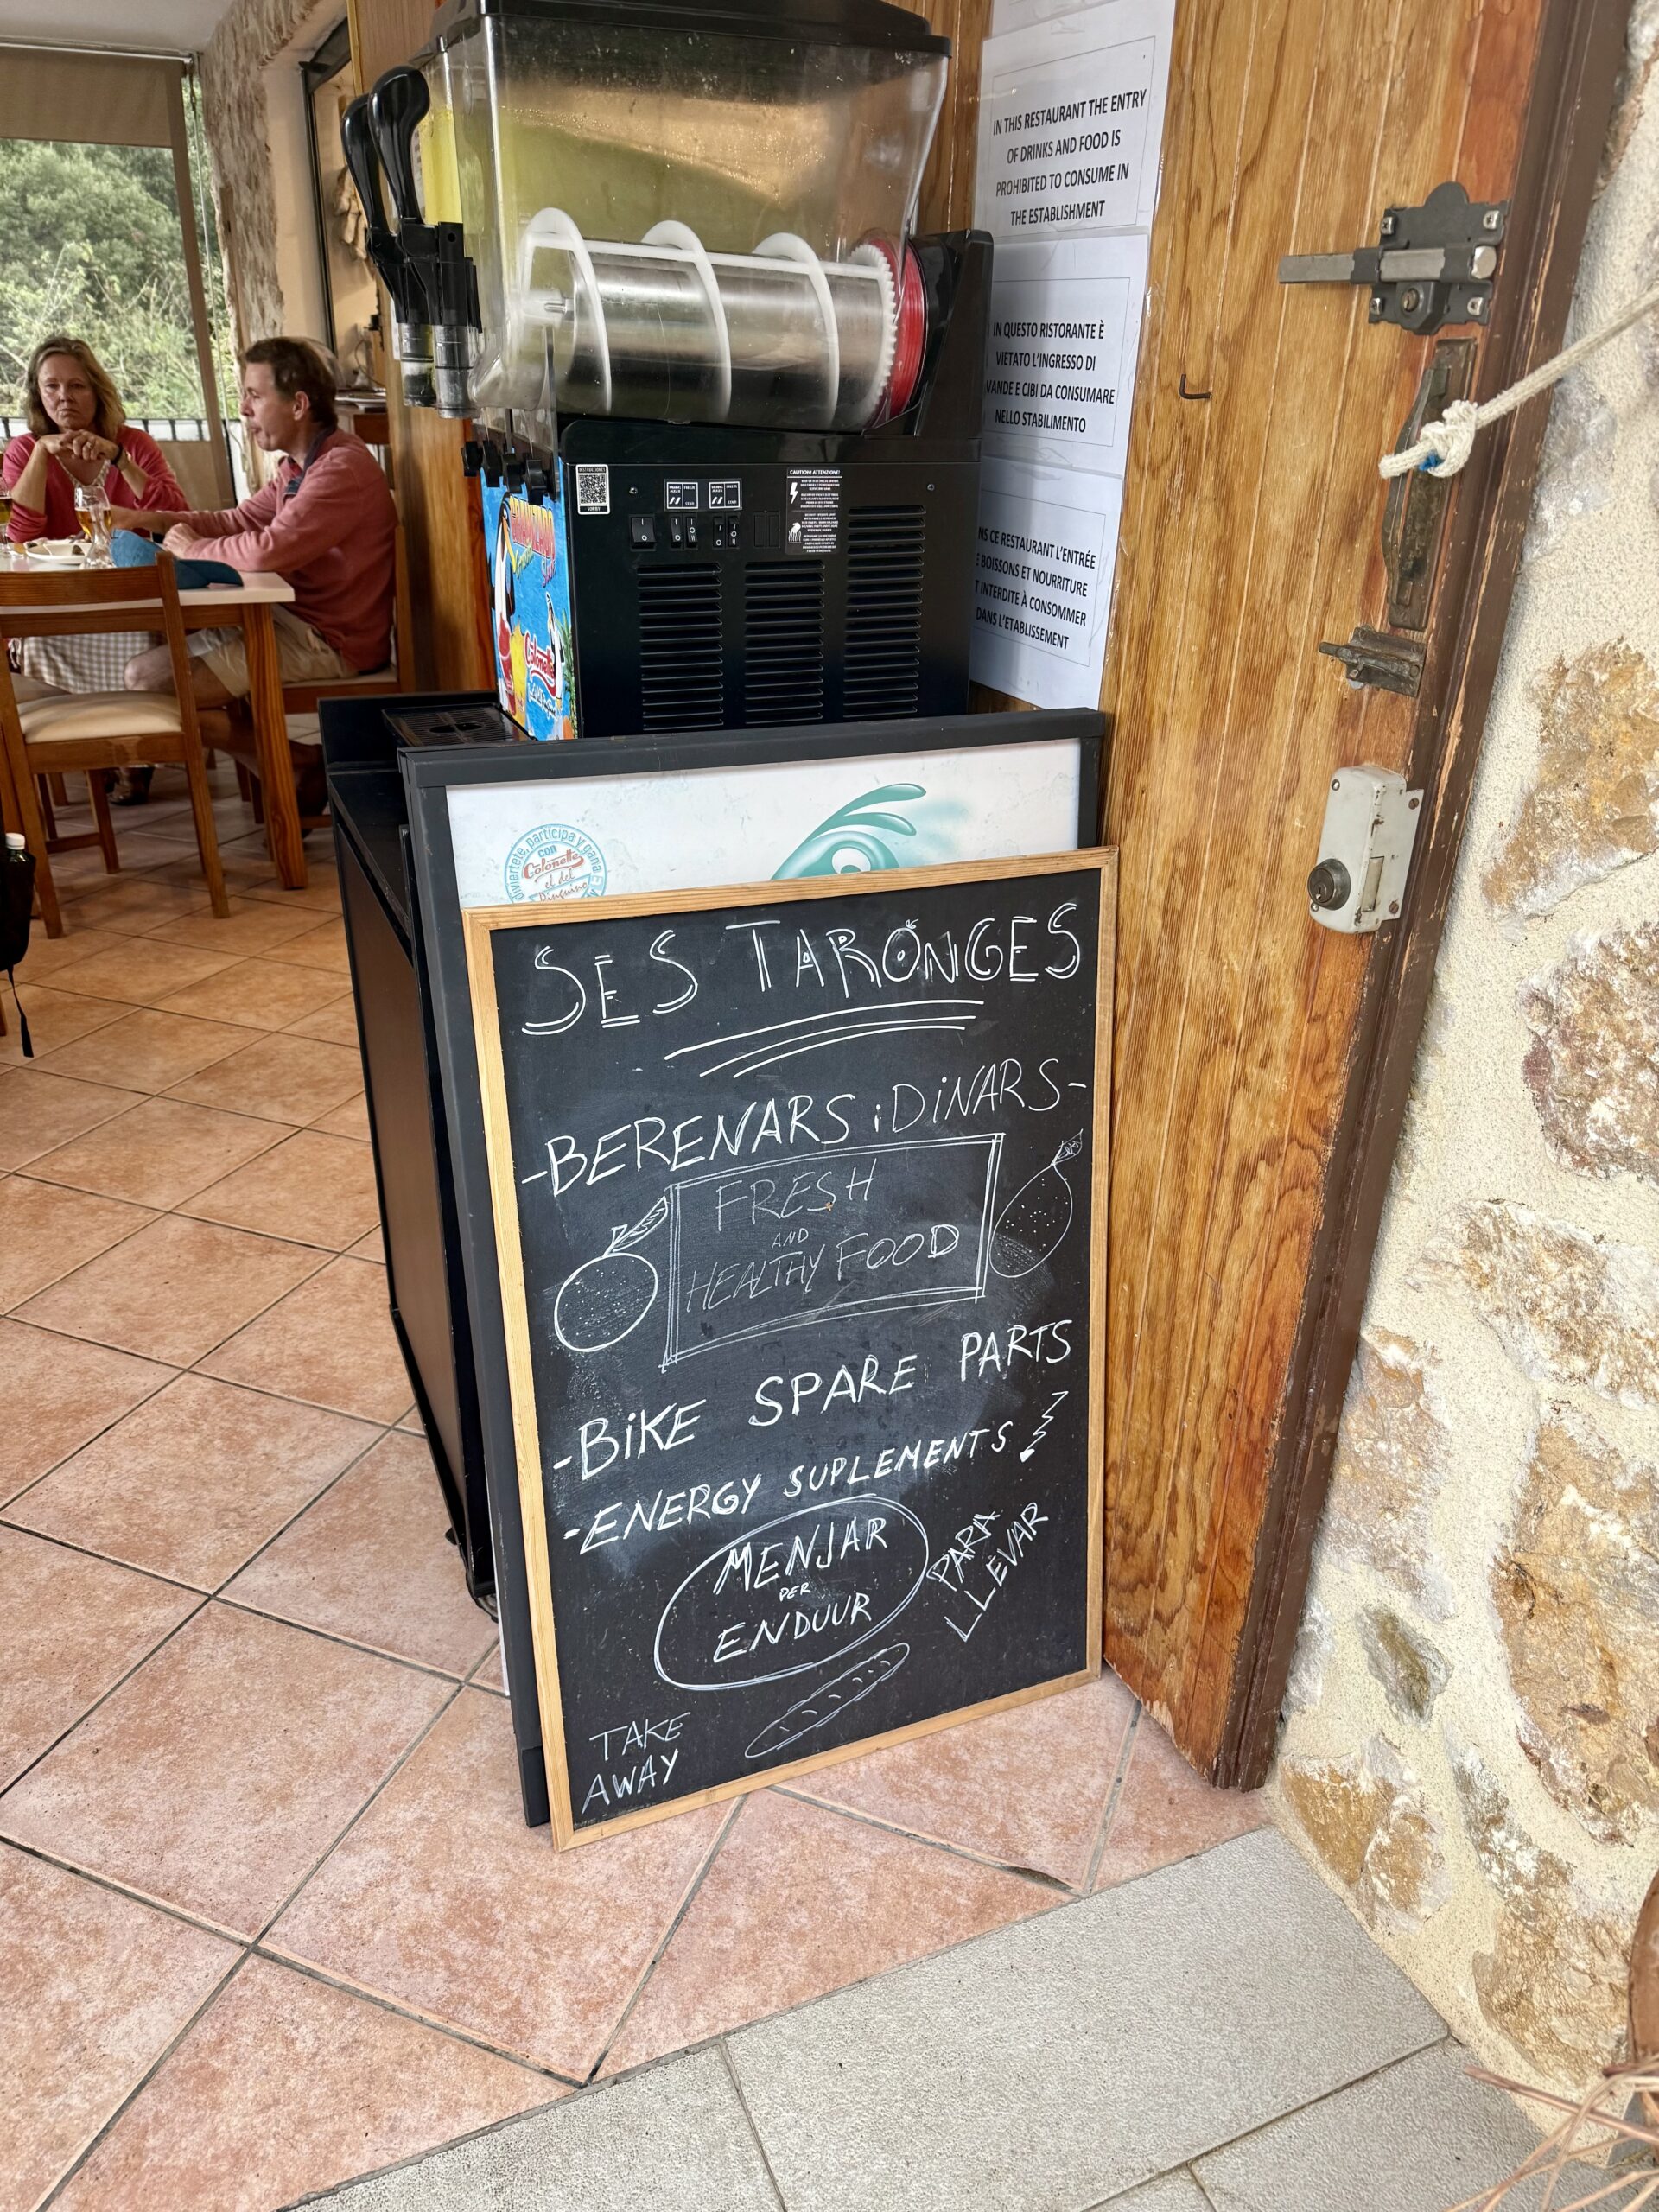 IN THIS RESTAURANT THE ENTRY
OF DRINKS AND FOOD IS
PROHIBITED TO CONSUME IN
THE ESTABLISHMENT
IN QUESTO RISTORANTE È
VIETATO L'INGRESSO DI
VANDE E CIBI DA CONSUMARE
NELLO STABILIMENTO
NS CE RESTAURANT L'ENTRÉE
BOISSONS ET NOURRITURE
T INTERDITE À CONSOMMER
DANS L'ETABLISSEMENT
CAUTION! ATTENZIONE!
Colonette
diviertete, participa y gana
con
Colonette
el del
Pinguino
SES TARONGES
-BERENARS i DiNARS-
FRESH
AND
HEALTHY FOOD
-BiKE SPARE PARTS
-ENERGY SUPLEMENTS
MENJAR
PER
ENDUUR
PARA
LLEVAR
TAKE
AWAY